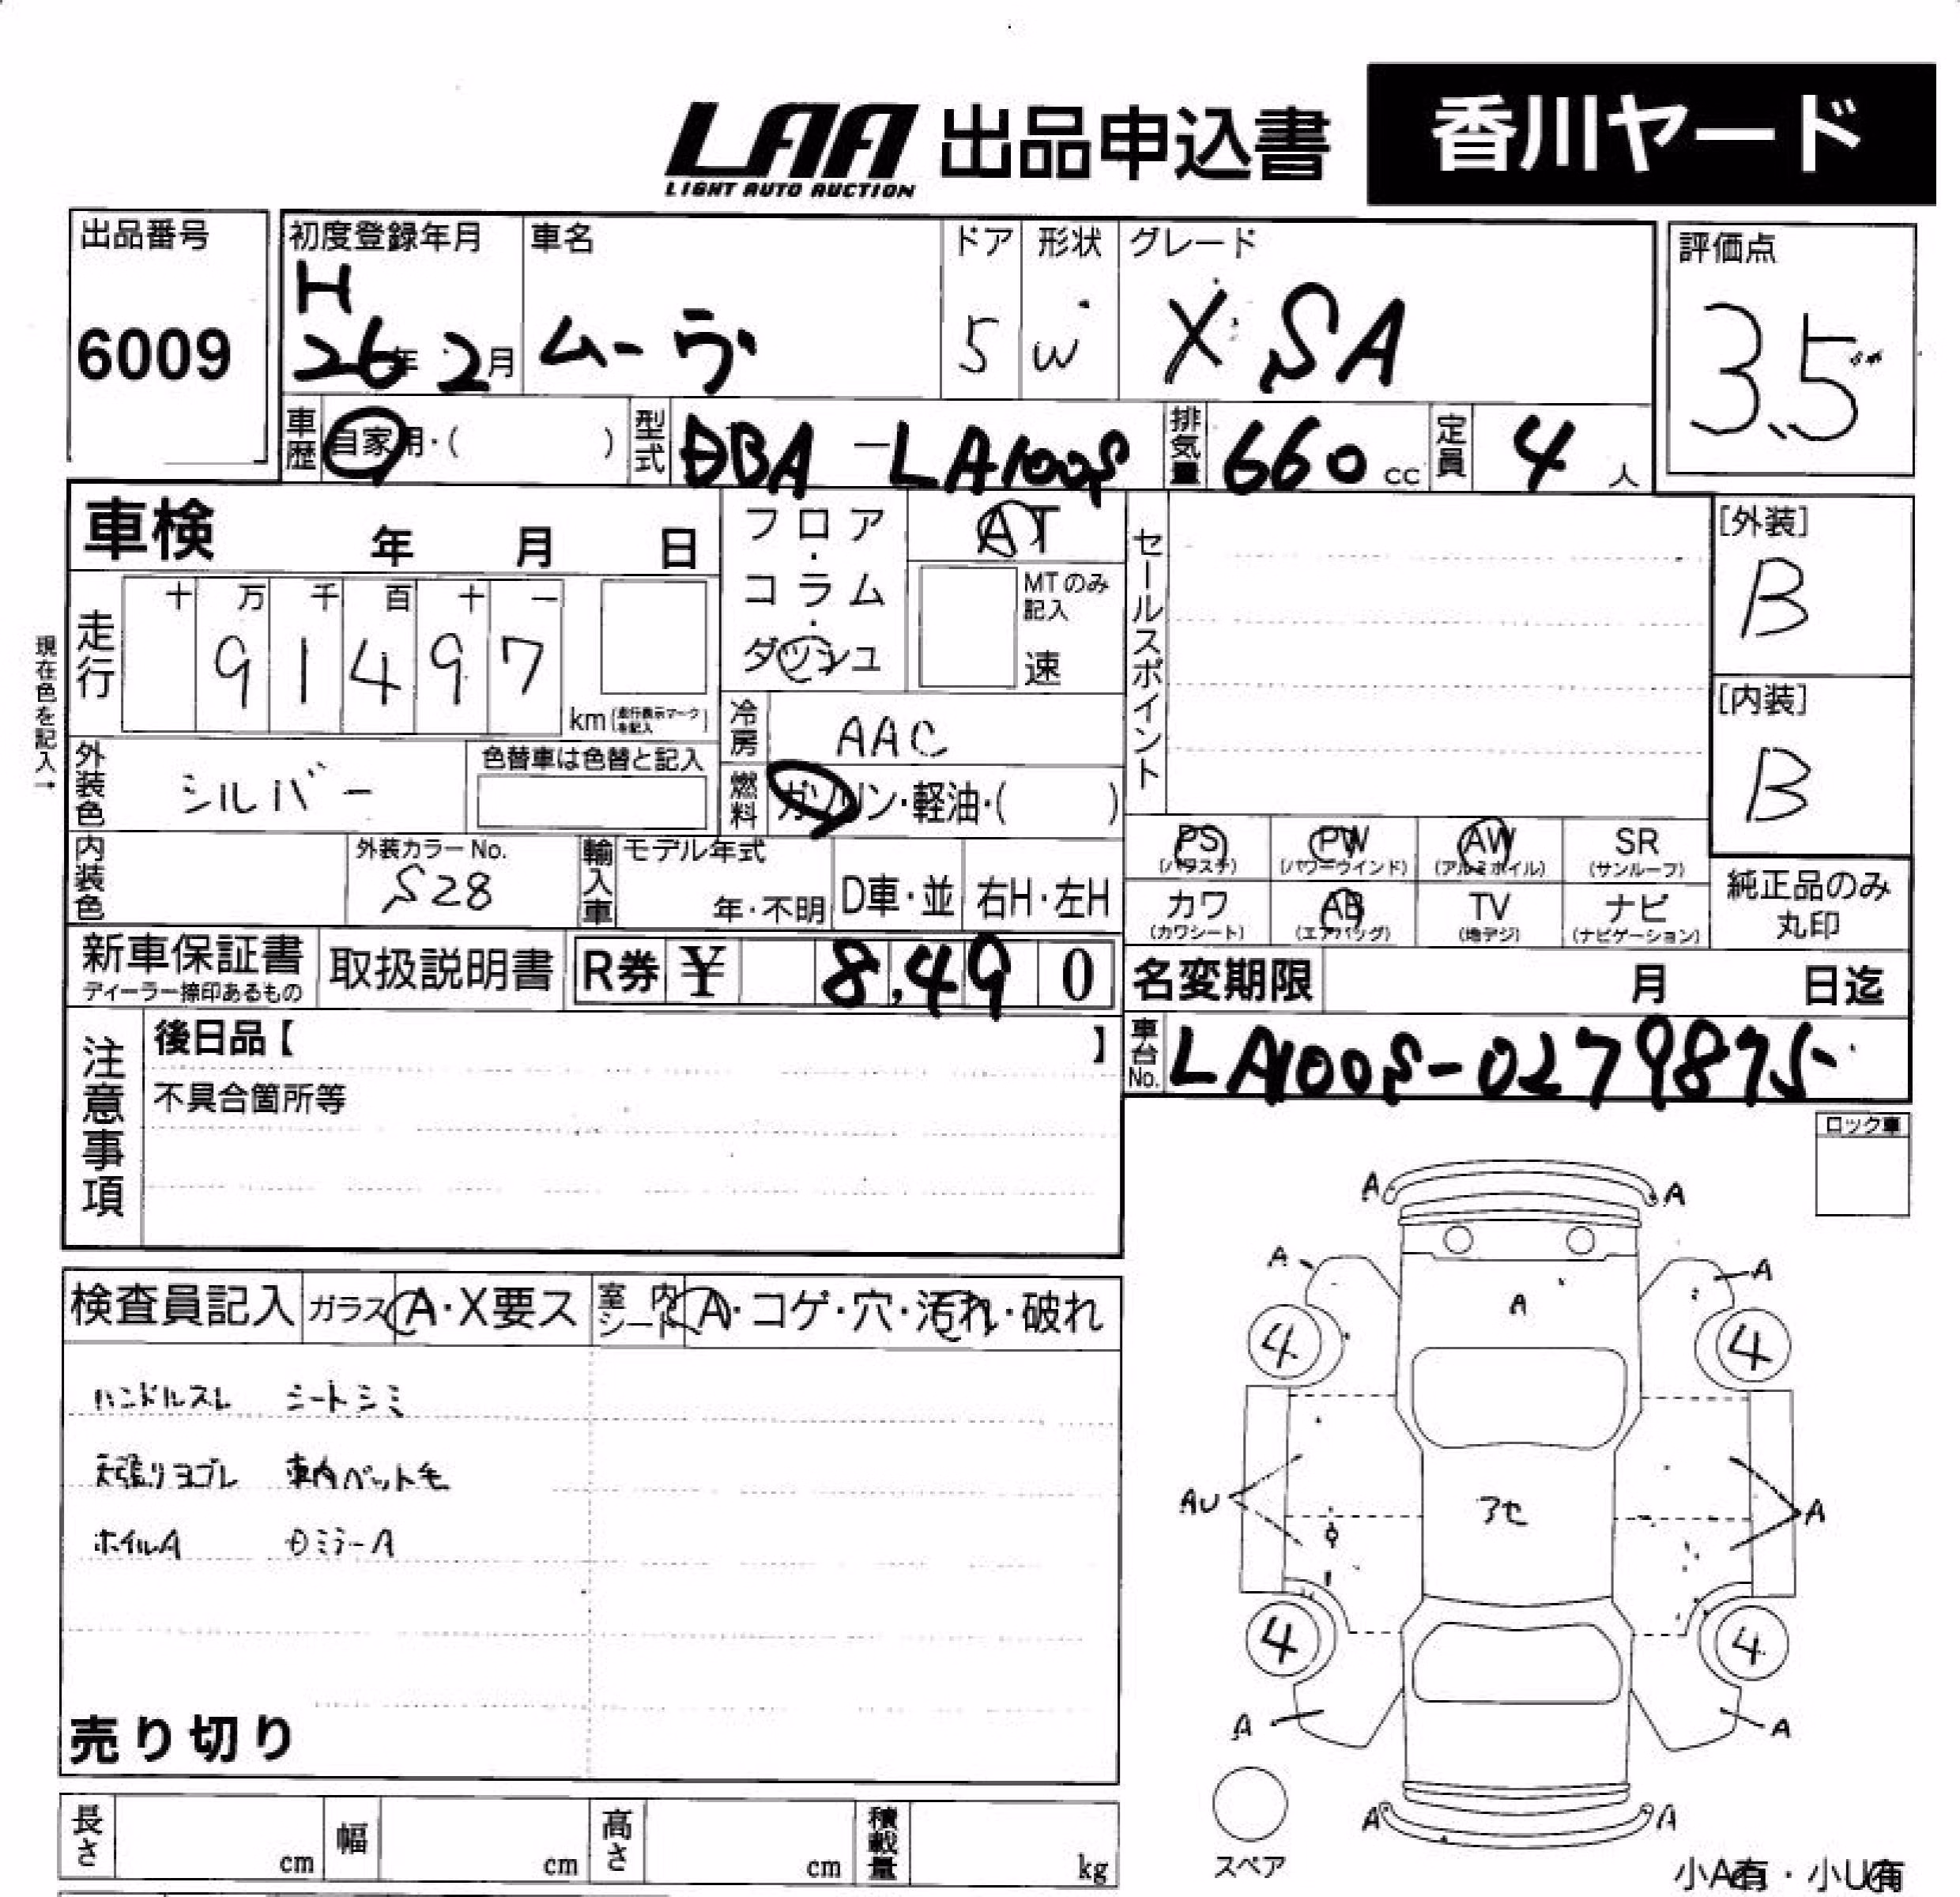 LAA 出品申込書 香川ヤード
LIGHT AUTO AUCTION
出品番号 初度登録年月 車名 ドア 形状 グレード 評価点
6009 H 26年 2月 ムーヴ 5 W X SA 3.5
車歴 自家用・( ) 型式 DBA-LA100S 排気量 660 cc 定員 4 人
車検 年 月 日 フロア・コラム・ダッシュ AT セールスポイント [外装]
B
MTのみ記入 速
走行 十 万 千 百 十 一
9 1 4 9 7 km (走行表示マークを記入)
現在色を記入→
[内装]
B
冷房 AAC
外装色 シルバー 色替車は色替と記入 燃料 ガソリン・軽油・( )
PS PW AW SR
(パワステ) (パワーウインド) (アルミホイル) (サンルーフ)
カワ AB TV ナビ
(カワシート) (エアバッグ) (地デジ) (ナビゲーション)
純正品のみ
丸印
内装色 外装カラーNo. S28 輸入車 モデル年式 年・不明 D車・並 右H・左H
新車保証書 取扱説明書 R券 ¥ 8,49 0 名変期限 月 日迄
ディーラー捺印あるもの
車台No. LA100S-0279875
注意事項 後日品【 】
不具合箇所等
ロック車
検査員記入 ガラス A・X要ス 室内シート A・コゲ・穴・汚れ・破れ
ハンドルスレ シートシミ
天張りヨゴレ 車内ペット毛
ホイルA ミラーA
売り切り
A A
A A
A
4 4
AU アセ A
4 4
A A
A A
スペア
長さ cm 幅 cm 高さ cm 積載量 kg
小A有・小U有